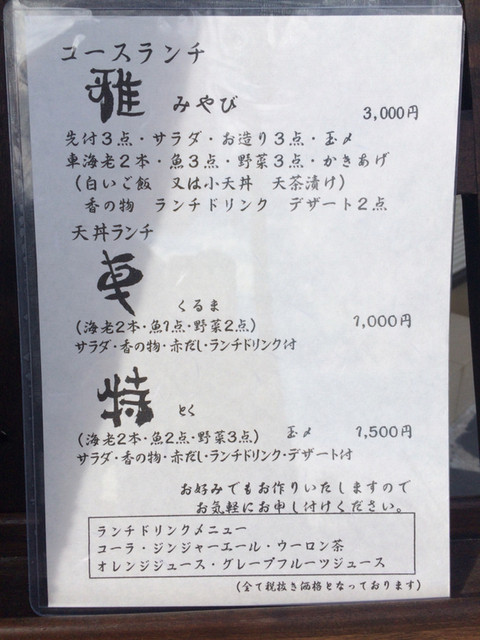 コースランチ
雅 みやび 3,000円
先付3点・サラダ・お造り3点・玉〆
車海老2本・魚3点・野菜3点・かきあげ
(白いご飯 又は小天丼 天茶漬け)
香の物 ランチドリンク デザート2点
天丼ランチ
車 くるま 1,000円
(海老2本・魚1点・野菜2点)
サラダ・香の物・赤だし・ランチドリンク付
特 とく 1,500円
(海老2本・魚2点・野菜3点) 玉〆
サラダ・香の物・赤だし・ランチドリンク・デザート付
お好みでもお作りいたしますので
お気軽にお申し付けください。
ランチドリンクメニュー
コーラ・ジンジャーエール・ウーロン茶
オレンジジュース・グレープフルーツジュース
(全て税抜き価格となっております)